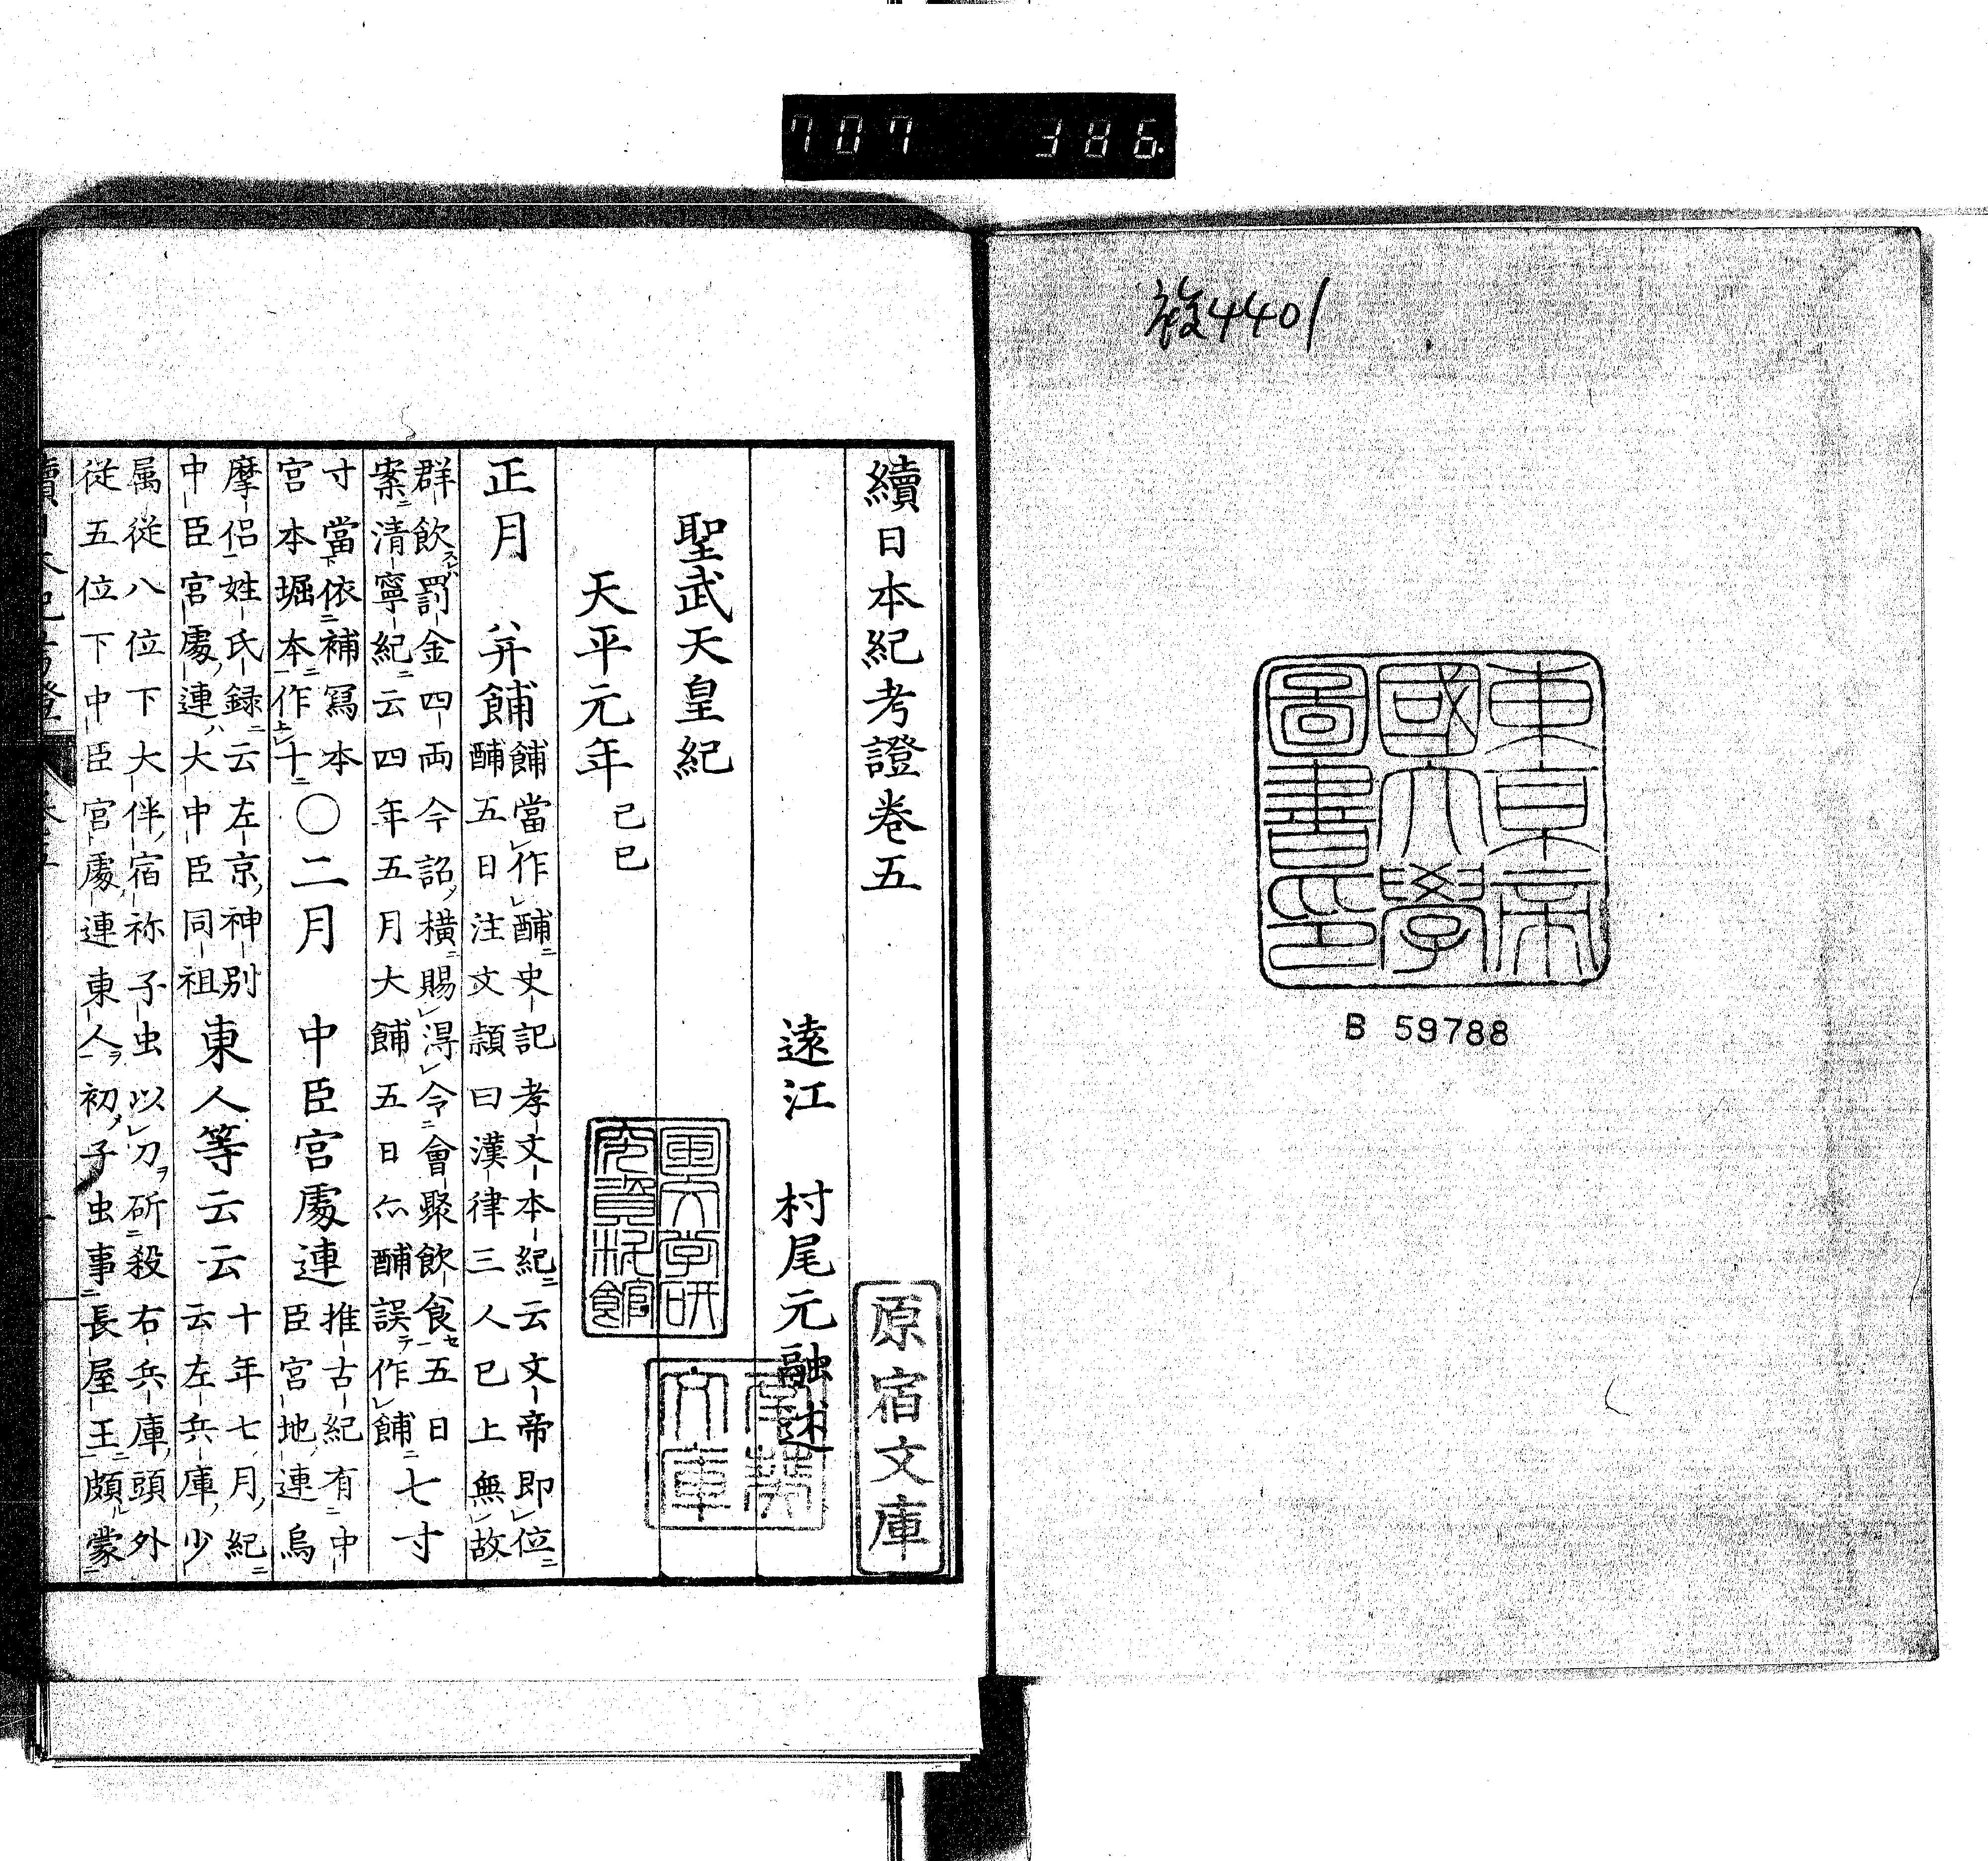 707 386.
複4401
東京帝
國大學
圖書印
B 59788
續日本紀考證卷五
原宿文庫
遠江 村尾元融述
聖武天皇紀
天平元年 己巳
正月 八弁餔 餔當作酺史記孝文本紀云文帝即位
酺五日注文頴曰漢律三人已上無故
群飲罰金四両今詔橫賜得令會聚飲食五日
案清寧紀云四年五月大餔五日亦酺誤作餔 七寸
寸當依補冩本
宮本堀本作十 〇二月 中臣宮處連 推古紀有中
臣宮地連烏
摩侶姓氏録云左京神別
中臣宮處連大中臣同祖 東人等云云 十年七月紀
云左兵庫少
属従八位下大伴宿祢子虫以刀斫殺右兵庫頭外
従五位下中臣宮處連東人初子虫事長屋王頗蒙
国文学研
究資料館
文庫